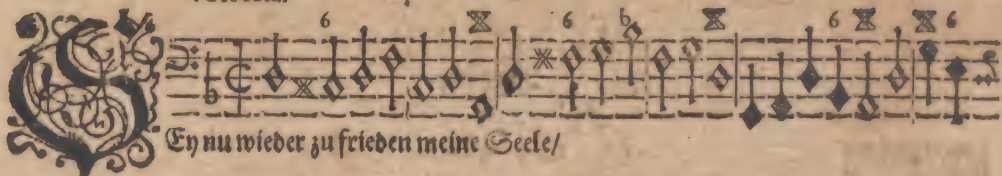 6 6 b 6 6
SEy nu wieder zu frieden meine Seele/